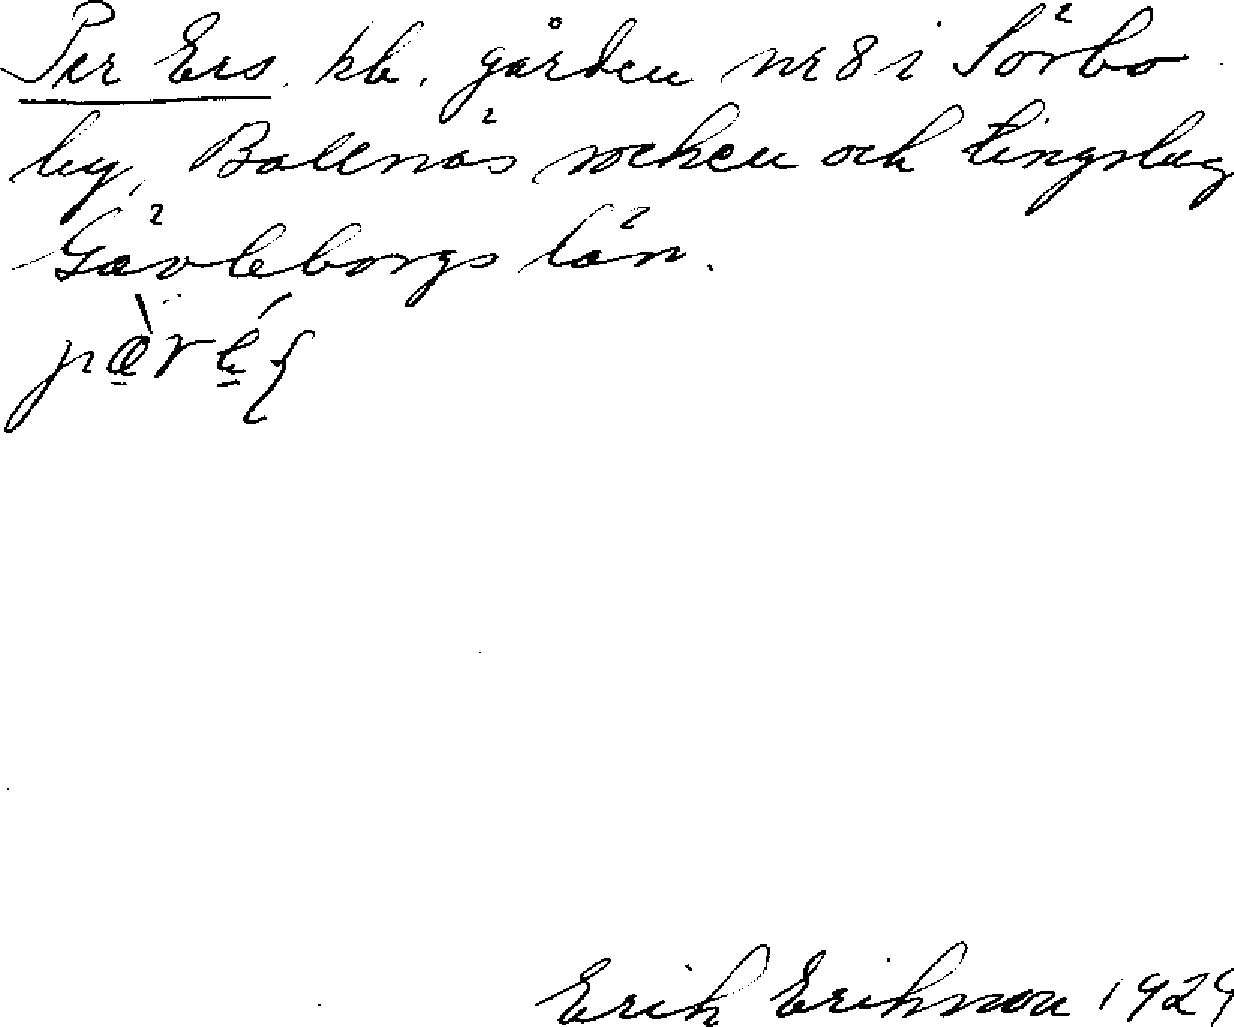 Per Ers. kb. gården nr 8 i Sörbo
by, Bollnäs socken och tingslag
Gävleborgs län.
Erik Erikson 1929